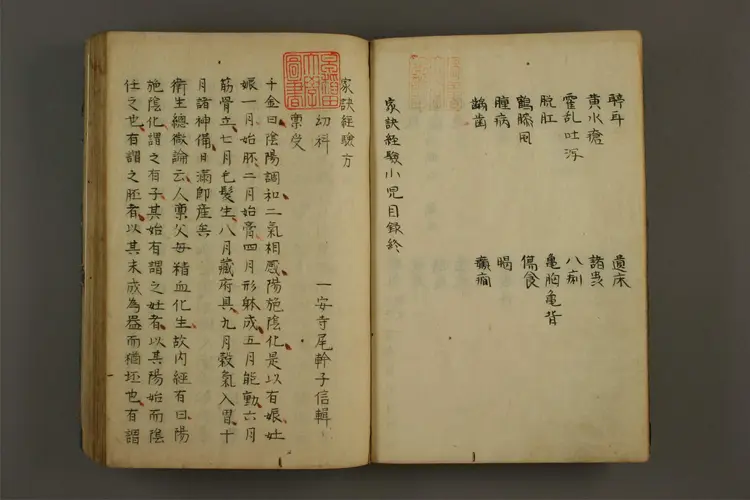 聤耳　遺床
黄水瘡　諸虫
霍乱吐瀉　八痢
脱肛　亀胸亀背
鶴膝風　傷食
腫病　喝
齲歯　癲癇
家訣経験小児目録終
家訣経驗方
一安寺尾幹子信輯
幼科
稟受
千金曰陰陽調和二氣相感陽施陰化是以有娠妊
娠一月始胚二月始膏四月形躰成五月能動六月
筋骨立七月毛髪生八月蔵府具九月穀氣入胃十
月諸神備日滿即産矣
衛生總微論云人稟父母精血化生故内經有曰陽
施陰化謂之有子其始有謂之妊者以其陽始而陰
任之也有謂之胚者以其未成為器而猶坯也有謂